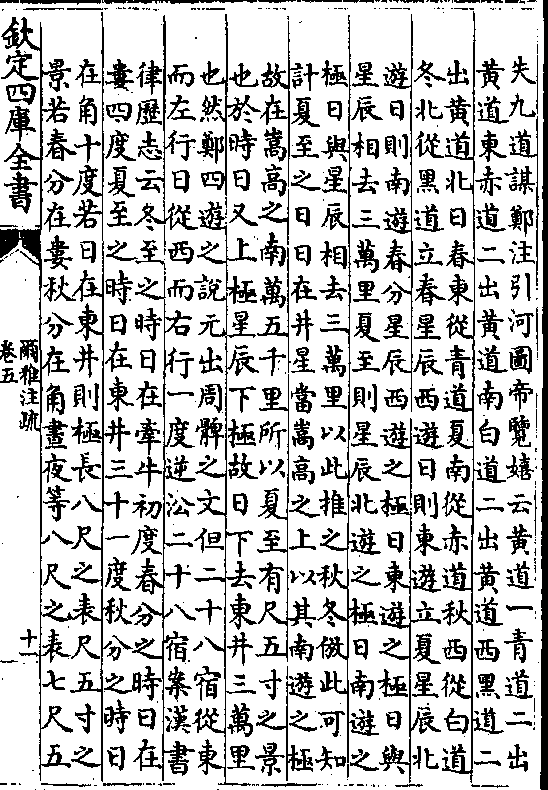 失九道謀鄭注引河圖帝覽嬉云黄道一青道二出
黄道東赤道二出黄道南白道二出黄道西黑道二
出黄道北日春東從青道夏南從赤道秋西從白道
冬北從黑道立春星辰西遊日則東遊立夏星辰北
遊日則南遊春分星辰西遊之極日東遊之極日與
星辰相去三萬里夏至則星辰北遊之極日南遊之
極日與星辰相去三萬里以此推之秋冬倣此可知
計夏至之日日在井星當嵩高之上以其南遊之極
故在嵩高之南萬五千里所以夏至有尺五寸之景
也於時日又上極星辰下極故日下去東井三萬里
也然鄭四遊之說元出周髀之文但二十八宿從東
而左行日從西而右行一度逆㳂二十八宿案漢書
律歷志云冬至之時日在牽牛初度春分之時日在
婁四度夏至之時日在東井三十一度秋分之時日
在角十度若日在東井則極長八尺之表尺五寸之
景若春分在婁秋分在角晝夜等八尺之表七尺五
欽定四庫全書
爾雅注疏
卷五
十一